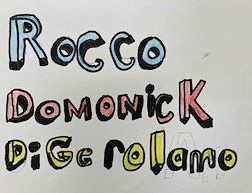 ROCCO
DOMONICK
DiGerolamo